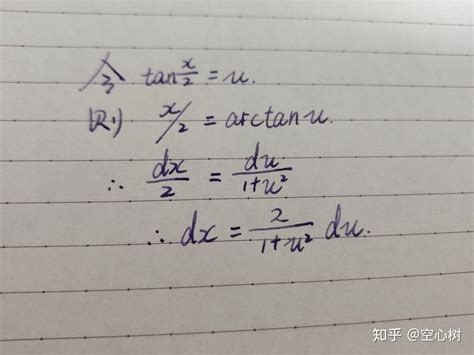 令 tan x/2 = u.
则 x/2 = arctan u.
∴ dx/2 = du/1+u²
∴ dx = 2/1+u² du.
知乎 @空心树